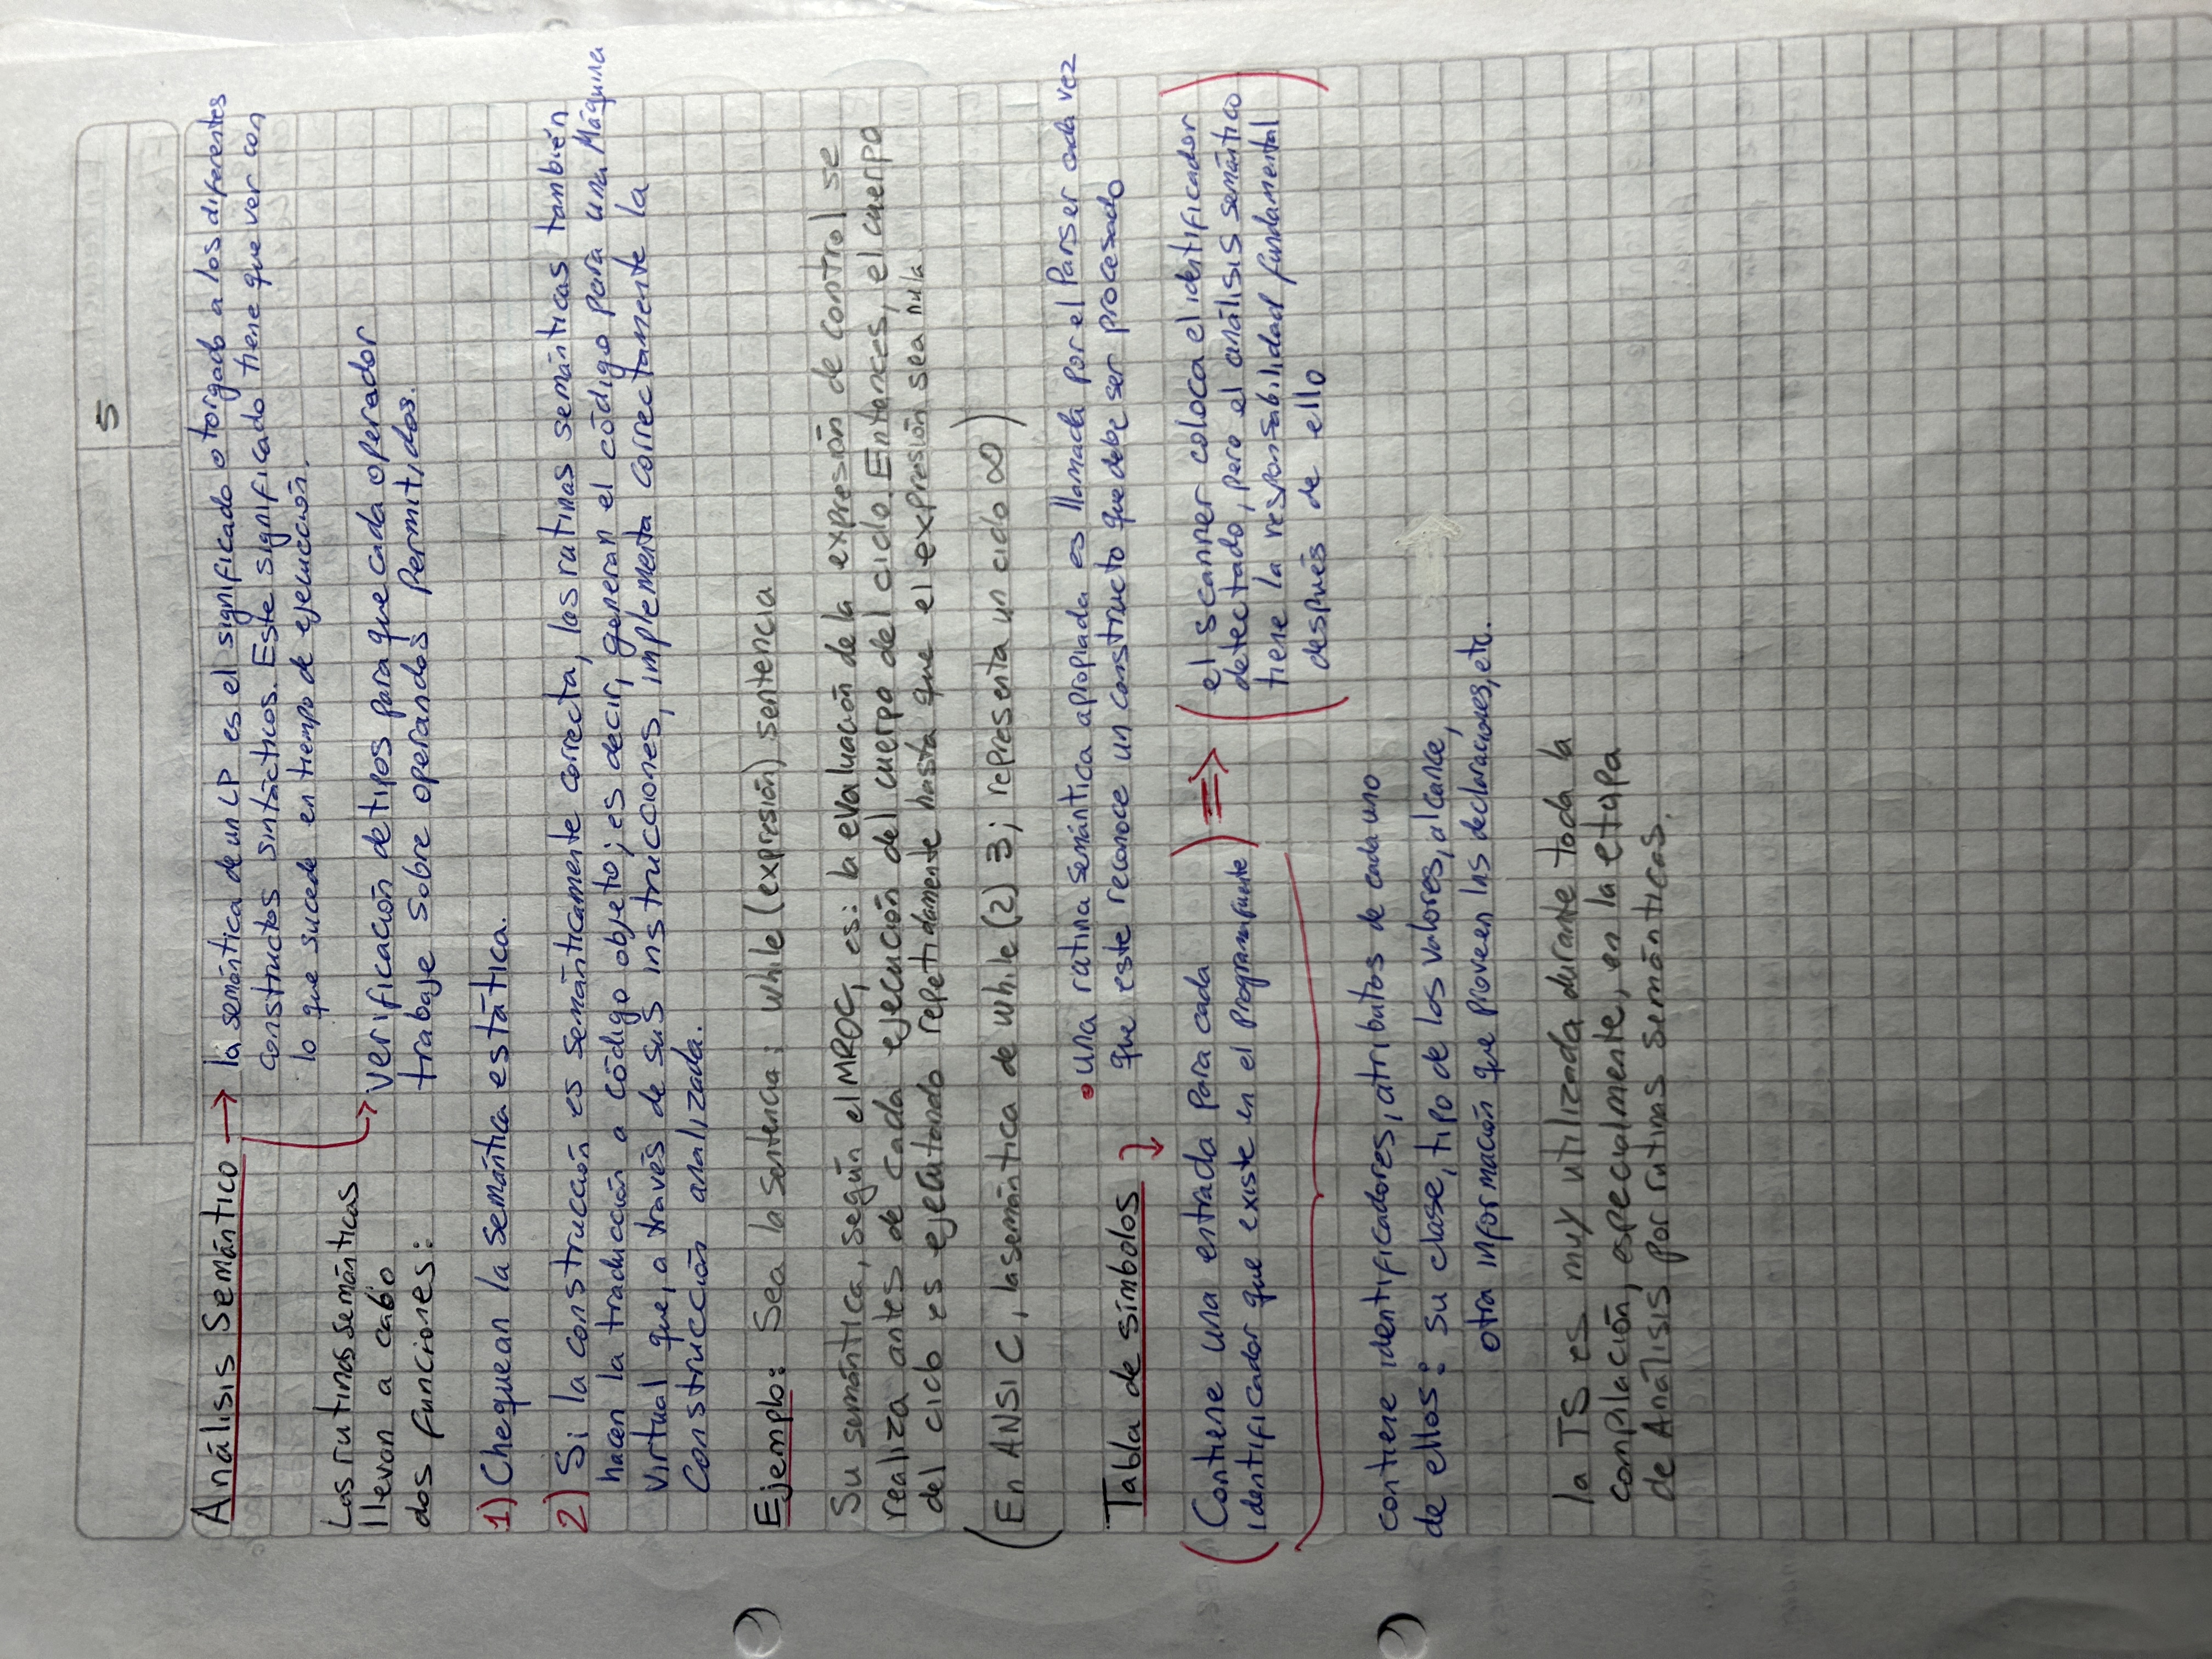 5
Análisis Semántico → la semántica de un LP es el significado otorgado a los diferentes
constructos sintácticos. Este significado tiene que ver con
lo que sucede en tiempo de ejecucción.
Las rutinas semánticas
llevan a cabo
dos funciones:
→ verificación de tipos para que cada operador
trabaje sobre operandos permitidos.
1) Chequean la semántica estática.
2) Si la construcción es semánticamente correcta, las rutinas semánticas también
hacen la traducción a código objeto; es decir, generan el código para una Máquina
Virtual que, a través de sus instrucciones, implementa correctamente la
construcción analizada.
Ejemplo: Sea la sentencia: while (expresión) sentencia
Su semántica, según el MROC, es: la evaluación de la expresión de control se
realiza antes de cada ejecución del cuerpo del ciclo. Entonces, el cuerpo
del ciclo es ejecutando repetidamente hasta que el expresión sea nula.
(En ANSI C, la semántica de while (2) 3; representa un ciclo ∞)
• una rutina semántica apropiada es llamada por el Parser cada vez
que este reconoce un constructo que debe ser procesado
Tabla de símbolos ↓
(Contiene una entrada para cada
identificador que existe en el programa fuente)
⇒ (el scanner coloca el identificador
detectado, pero el análisis semántico
tiene la responsabilidad fundamental
después de ello)
contiene identificadores, atributos de cada uno
de ellos: su clase, tipo de los valores, alcance,
otra información que proveen las declaraciones, etc.
la TS es muy utilizada durante toda la
compilación, especialmente, en la etapa
de Análisis por rutinas semánticas.